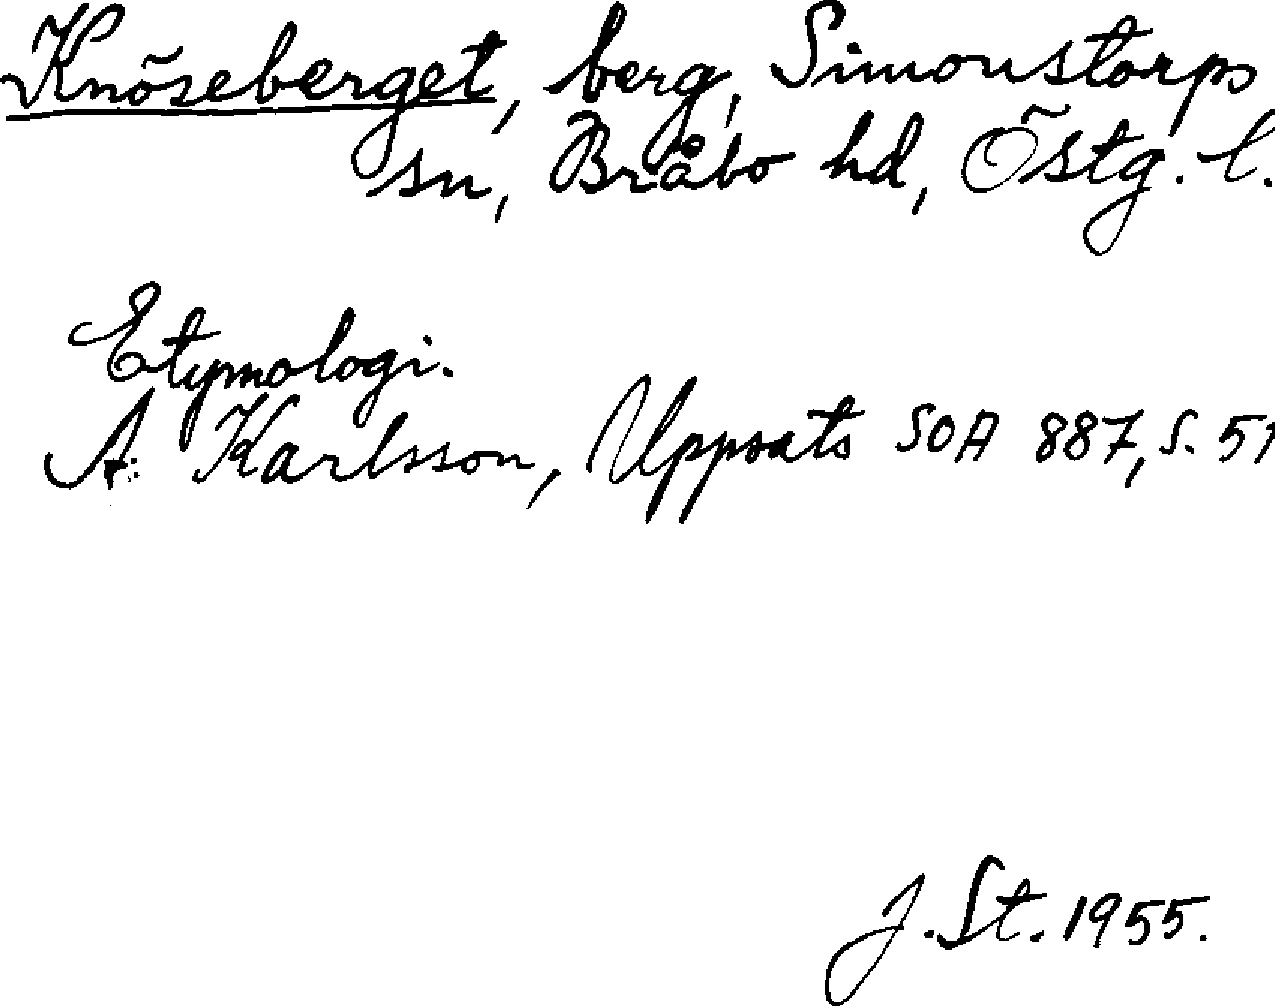 Knöseberget, berg, Simonstorps
sn, Bråbo hd, Östg. l.
Etymologi.
A. Karlsson, Uppsats SOA 887, s. 51
J. St. 1955.